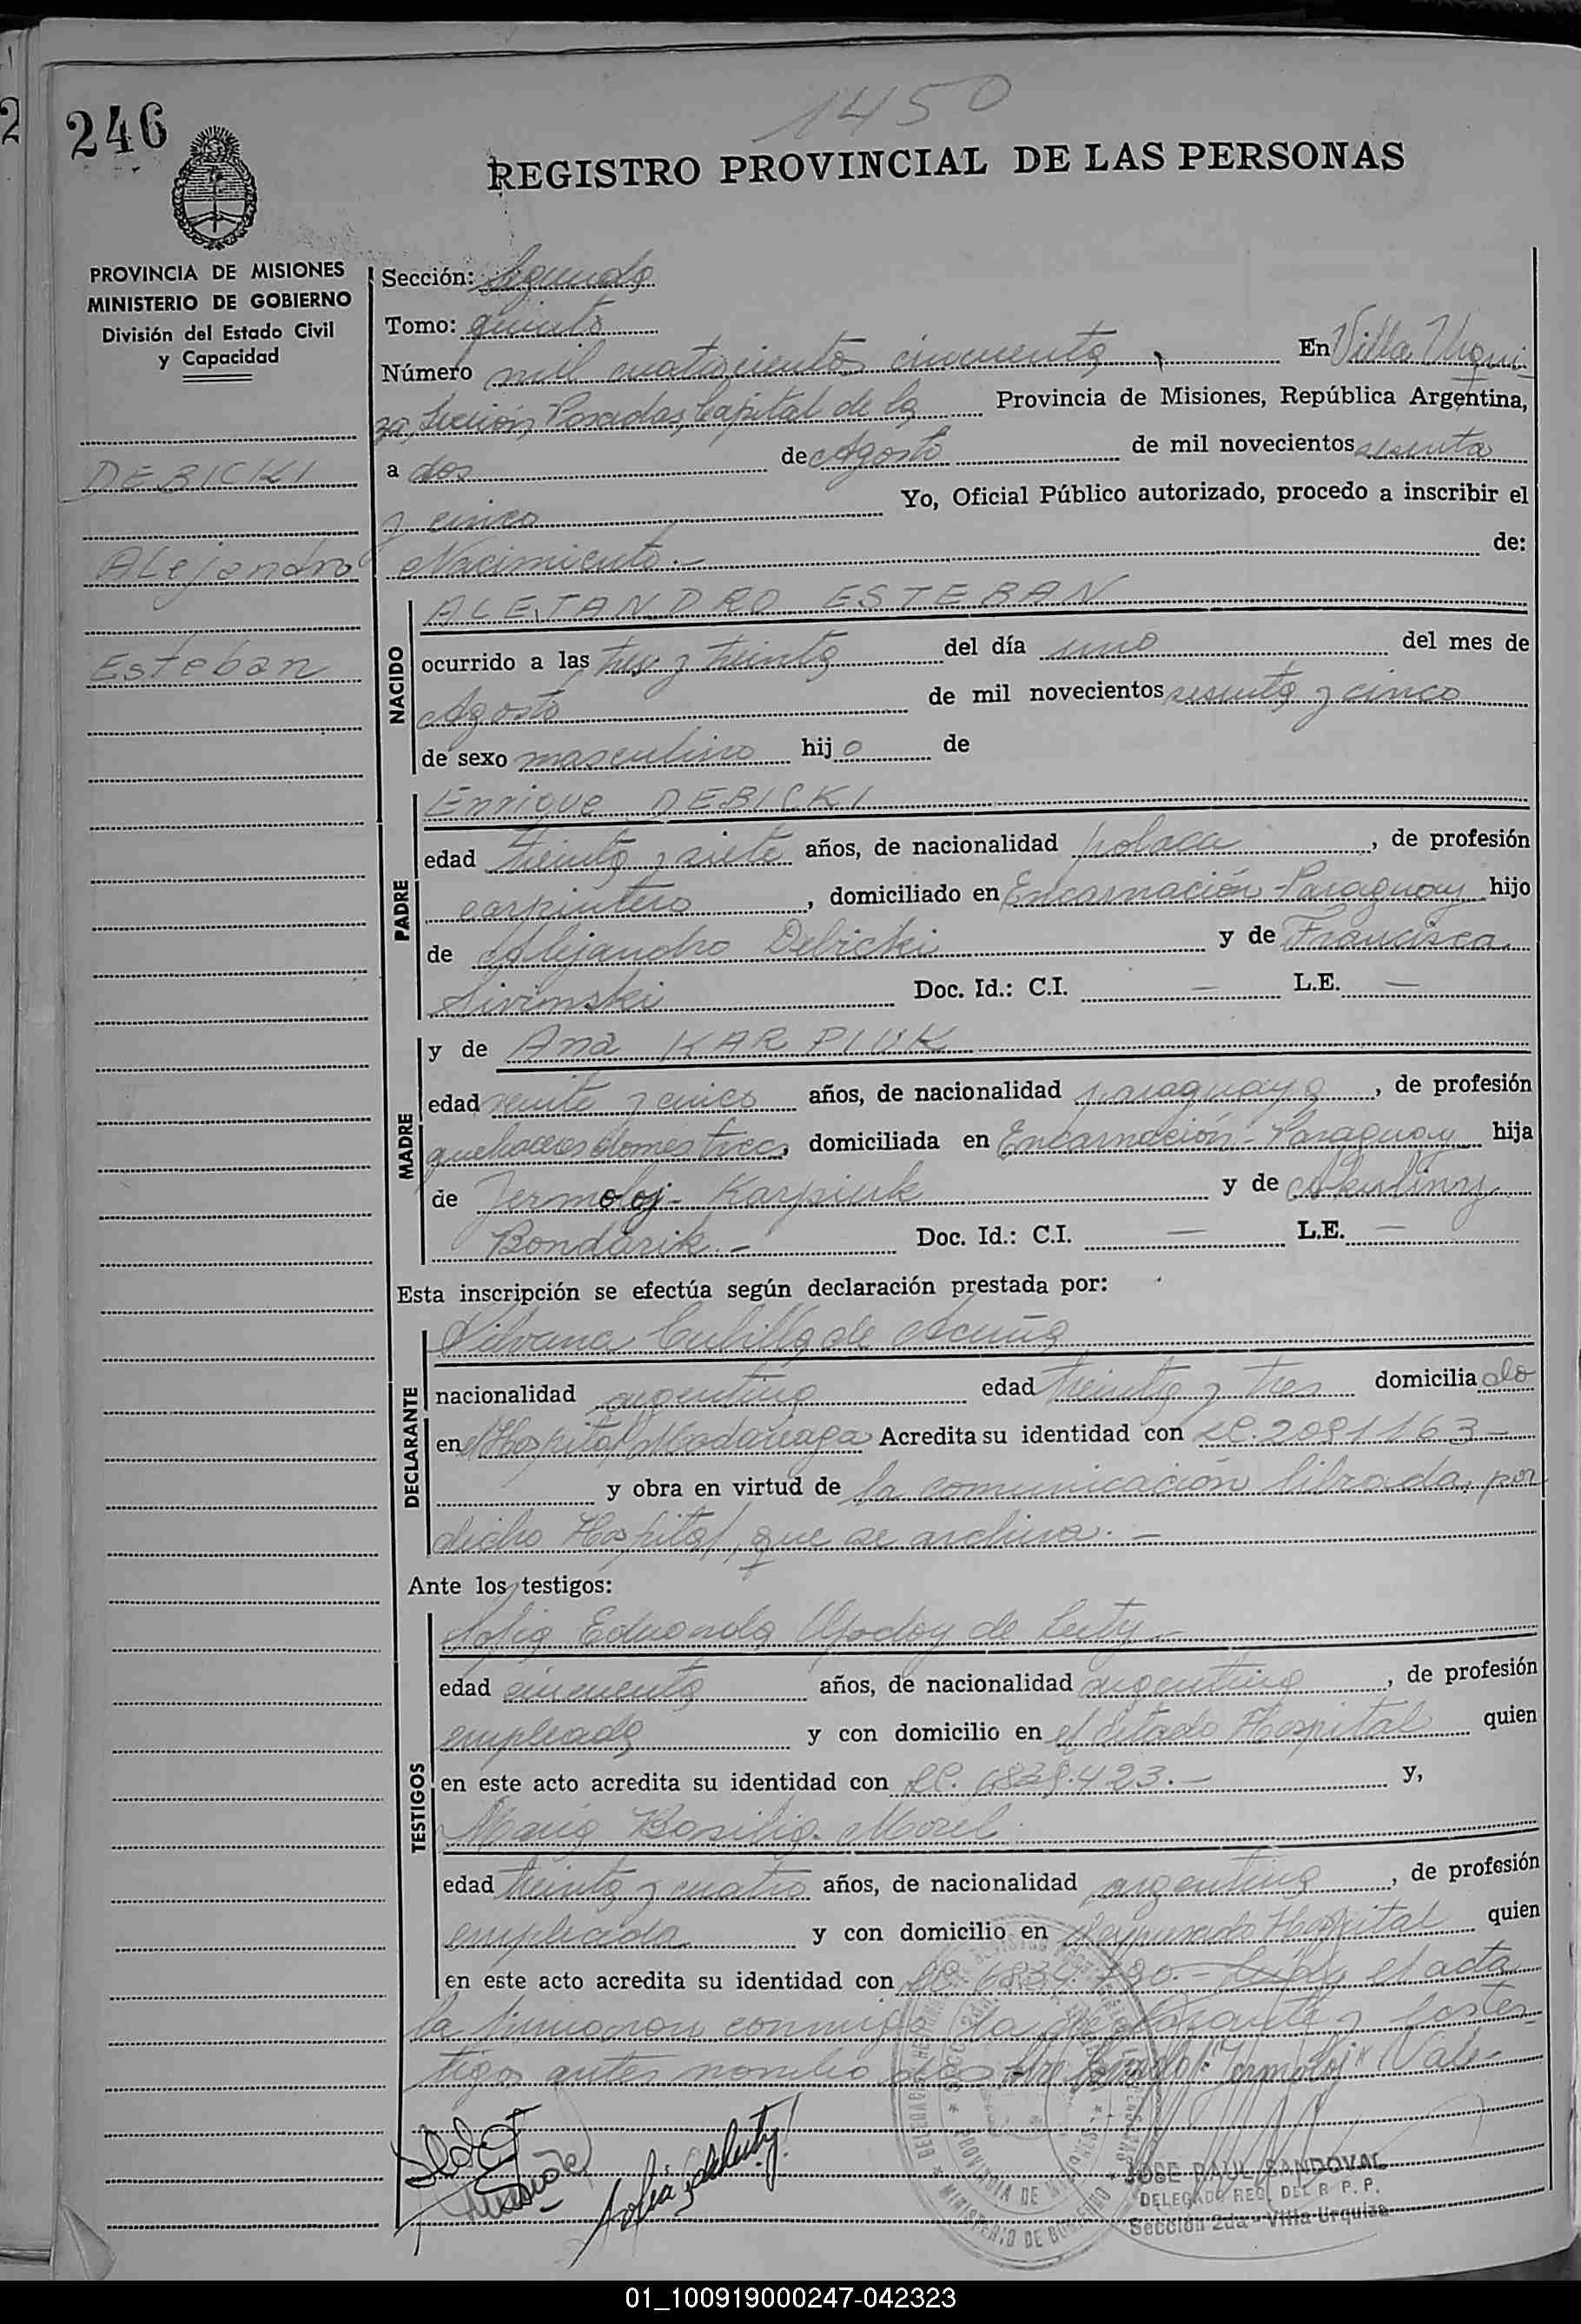 1450
246
REGISTRO PROVINCIAL DE LAS PERSONAS
PROVINCIA DE MISIONES
MINISTERIO DE GOBIERNO
División del Estado Civil
y Capacidad
DEBICKI
Alejandro
Esteban
Sección: Segunda
Tomo: quinto
Número mil cuatrocientos cincuenta, En Villa Urqui-
za, Sección, Posadas, Capital de la Provincia de Misiones, República Argentina,
a dos de Agosto de mil novecientos sesenta
y cinco Yo, Oficial Público autorizado, procedo a inscribir el
Nacimiento.- de:
NACIDO
ALEJANDRO ESTEBAN
ocurrido a las tres y treinta del día uno del mes de
Agosto de mil novecientos sesenta y cinco
de sexo masculino hijo de
PADRE
Enrique DEBICKI
edad treinta y siete años, de nacionalidad polaca, de profesión
carpintero, domiciliado en Encarnación-Paraguay hijo
de Alejandro Debicki y de Francisca
Doc. Id.: C.I. — L.E. —
MADRE
y de Ana KARPIUK
edad veinte y cinco años, de nacionalidad paraguaya, de profesión
quehaceres domésticos, domiciliada en Encarnación-Paraguay hija
de Jermoloj- Karpiuk y de Akulina
Bondarik.- Doc. Id.: C.I. — L.E. —
Esta inscripción se efectúa según declaración prestada por:
DECLARANTE
Silvana Cubilla de Acuña
nacionalidad argentina edad treinta y tres domiciliado
en el Hospital Madariaga Acredita su identidad con LC. 2081163-
y obra en virtud de la comunicación librada por
dicho Hospital, que se archiva.-
Ante los testigos:
TESTIGOS
Sofia Eduarda Godoy de Leity.-
edad cincuenta años, de nacionalidad argentina, de profesión
empleada y con domicilio en el citado Hospital quien
en este acto acredita su identidad con LC. 6839.423.- y,
María Basilia Morel
edad treinta y cuatro años, de nacionalidad argentina, de profesión
empleada y con domicilio en el expresado Hospital quien
en este acto acredita su identidad con LC. 6834. Leída el acta
la firmaron conmigo la declarante y los tes-
tigos antes Vale-
JOSE RAUL SANDOVAL
DELEGADO REG. DEL R P. P.
Sección 2da - Villa Urquiza
01_100919000247-042323